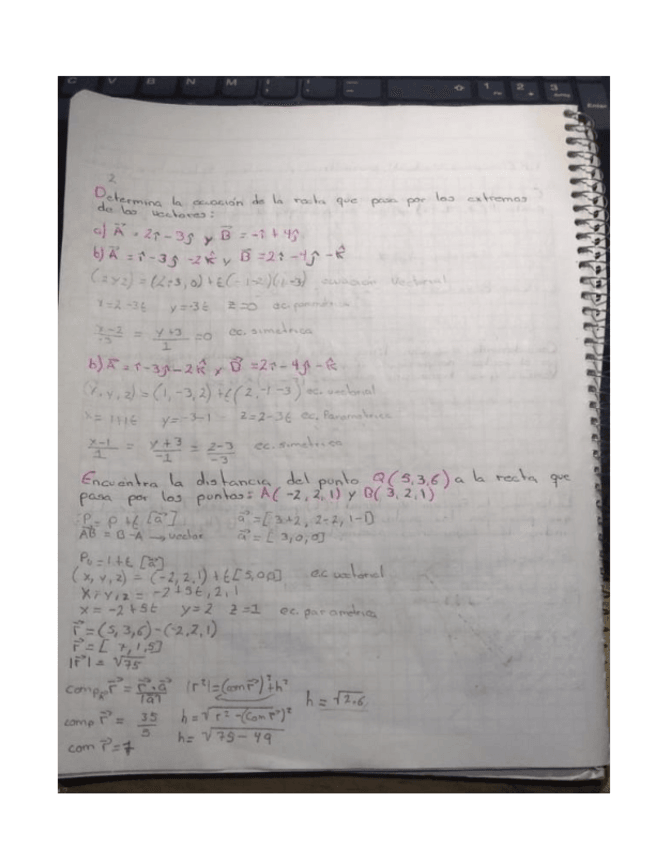 C V B N M 1 2 3
Enter
2
Determina la ecuación de la recta que pasa por los extremos
de los vectores:
a) A⃗ = 2î - 3ĵ y B⃗ = -î + 4ĵ
b) A⃗ = î - 3ĵ - 2k̂ y B⃗ = 2î - 4ĵ - k̂
ecuación vectorial
x=2-3t y=-3t z=0
x-2/-3 = y+3/1 =0 ec. simetrica
b) A⃗ = î - 3ĵ - 2k̂ y B⃗ = 2î - 4ĵ - k̂
(x, y, z) = (1, -3, 2) + t(2, -1 -3) ec. vectorial
x= 1+1t y= -3-1 z=2-3t ec. Parametrica
x-1/1 = y+3/-1 = z-3/-3 ec. simetrica
Encuentra la distancia del punto Q(5,3,6) a la recta que
pasa por los puntos: A(-2,2,1) y B(3,2,1)
P = P + t [a⃗] a⃗ = [3+2, 2-2, 1-1]
AB⃗ = B-A → vector a⃗ = [3,0,0]
P₀ = 1+t [a⃗]
(x, y, z) = (-2,2,1) + t[5,0,0] ec vectorial
x, y, z = -2+5t, 2, 1
x = -2+5t y=2 z=1 ec. parametrica
r⃗ = (5,3,6) - (-2,2,1)
r⃗ = [7,1,5]
|r⃗| = √75
comp r⃗ = r⃗·a⃗/|a⃗| |r²| = (com r⃗)² + h² h = √2.6
comp r⃗ = 35/5 h = √r² - (com r⃗)²
com r⃗ = 7 h = √75 - 49